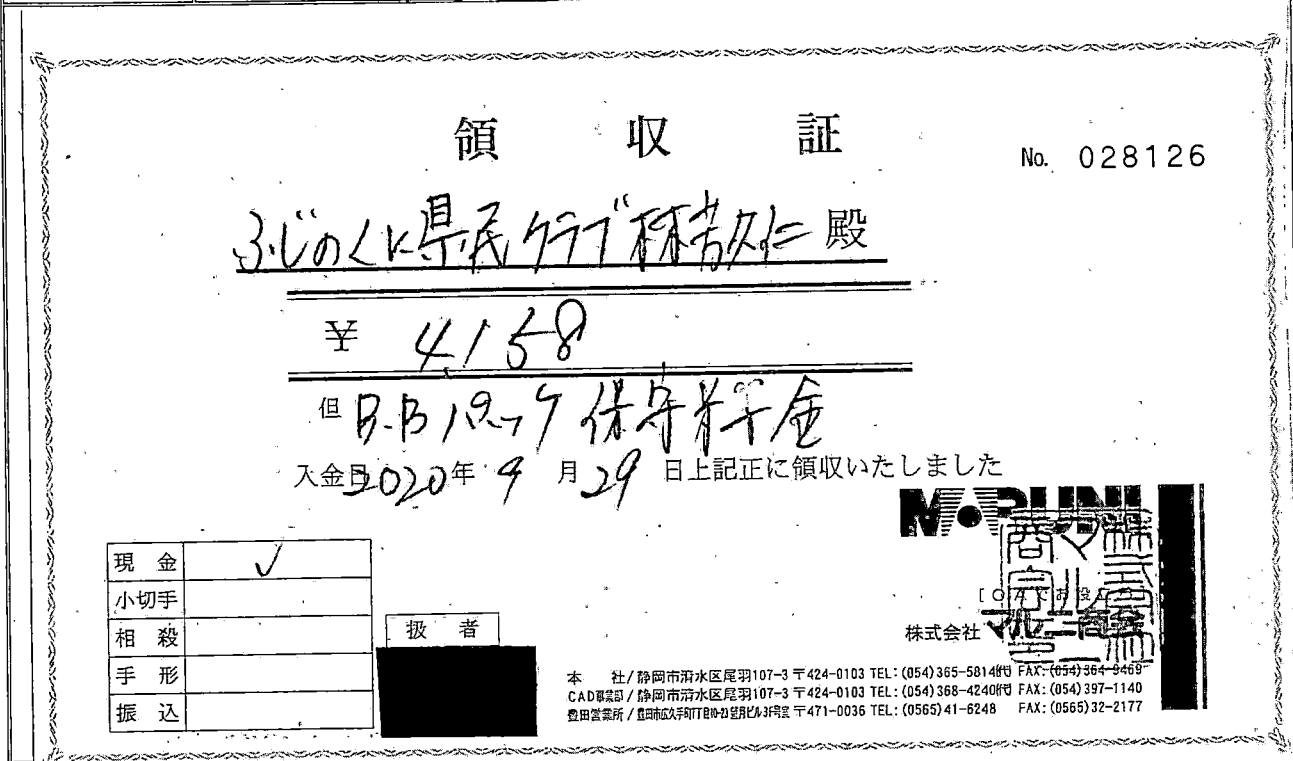 領収証
No. 028126
ふじのくに県民クラブ 林芳久仁 殿
¥ 4,158
但 B.Bパック保守料金
入金日2020年9月29日上記正に領収いたしました
MARUNI
現金 ✓
小切手
相殺
手形
振込
扱者
株式会社 マルニ商会
本 社/静岡市清水区尾羽107-3 〒424-0103 TEL:(054)365-5814㈹ FAX:(054)364-9469
CAD事業部/静岡市清水区尾羽107-3 〒424-0103 TEL:(054)368-4240㈹ FAX:(054)397-1140
〒471-0036 TEL:(0565)41-6248 FAX:(0565)32-2177